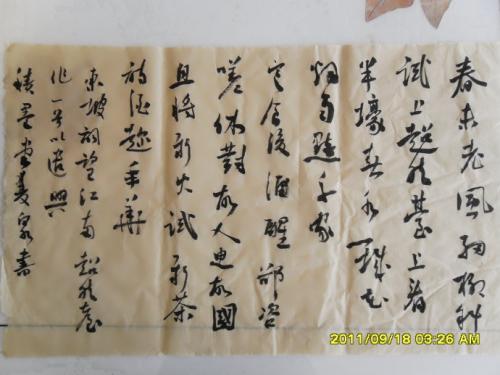 春未老風細柳斜
試上超然臺上看
半壕春水一城花
烟雨黯千家
寒食後酒醒却咨
嗟休對故人思故國
且將新火試新茶
詩酒趁年華
東坡詞望江南超然臺
作一首以遣興
墨堂泉書
2011/09/18 03:26 AM